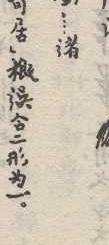 ……诸
可居」概误合二形为一。